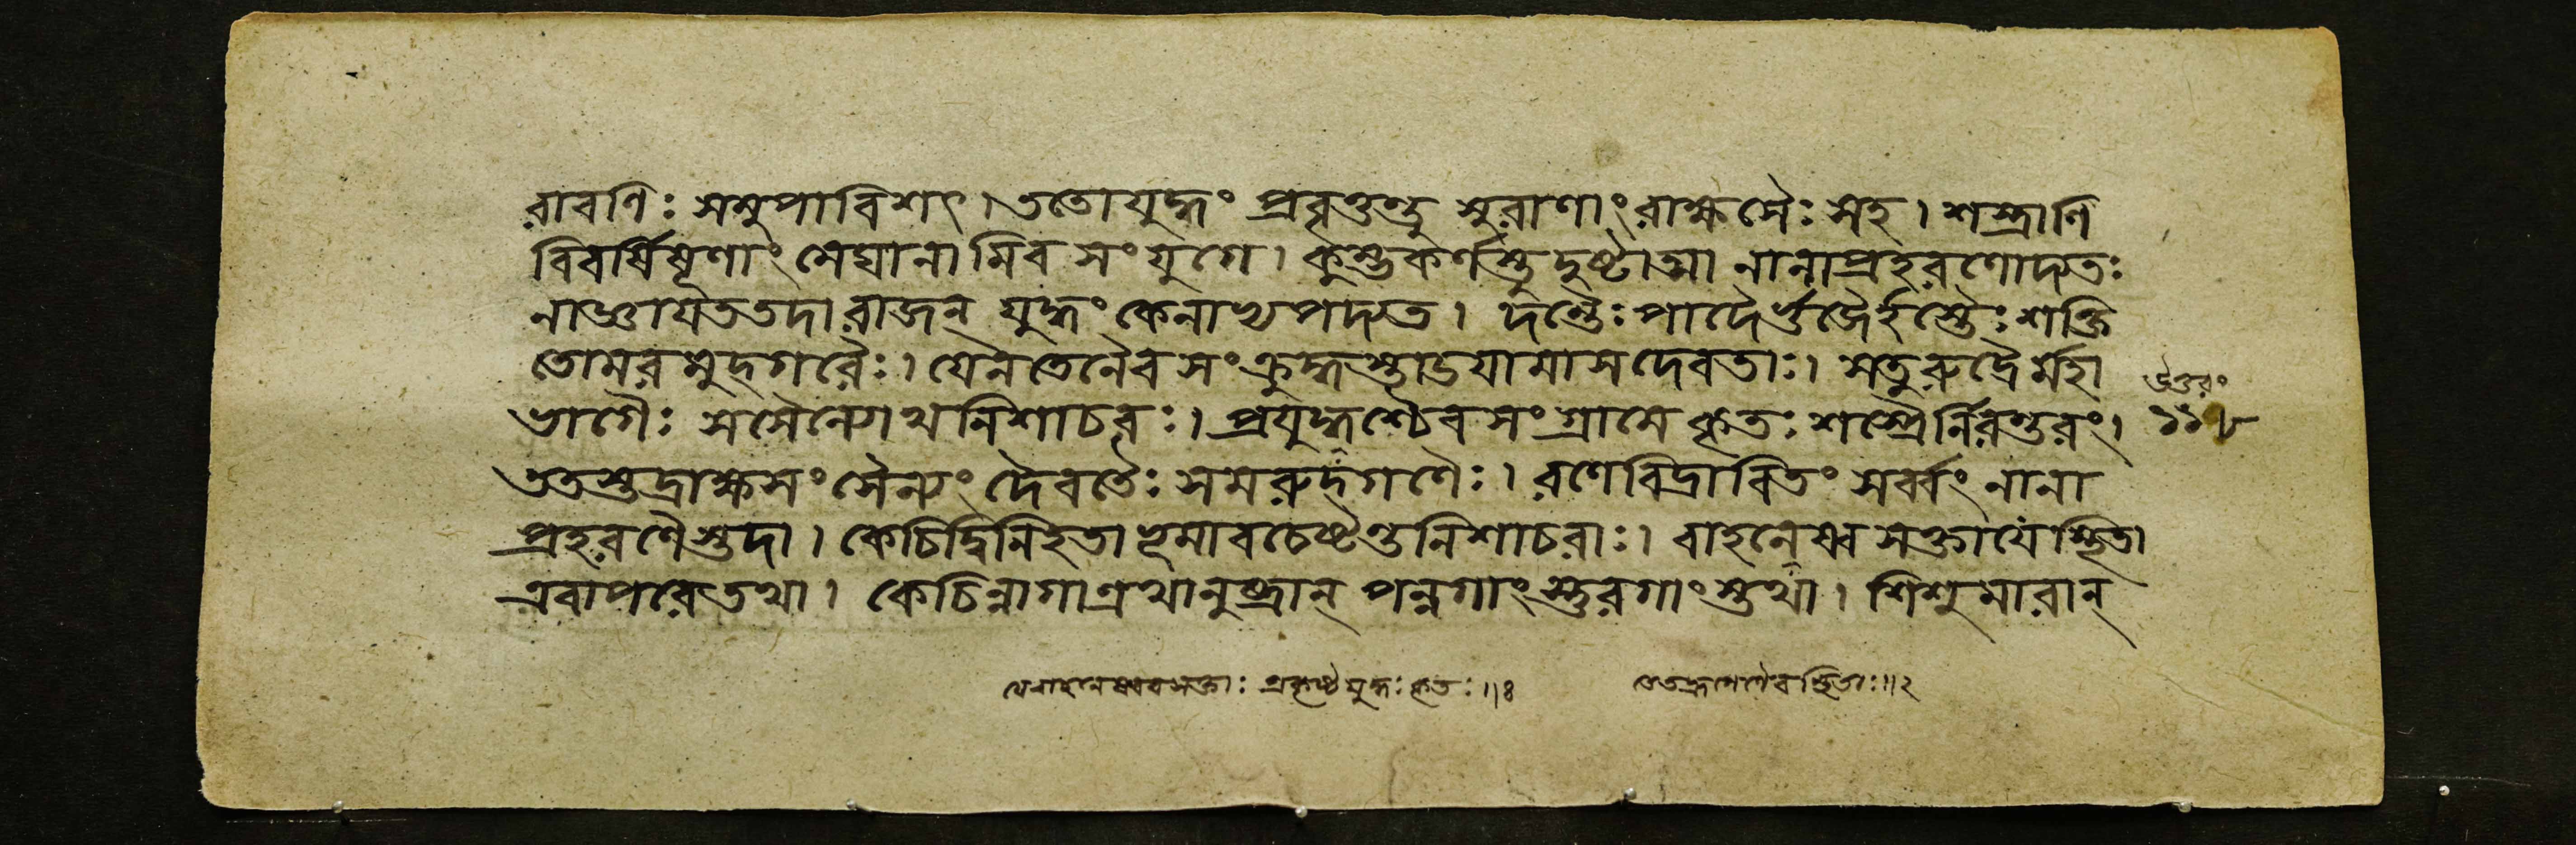 রাবণিঃ সমুপাবিশৎ। ততোযুদ্ধং প্রবৃত্তন্তু সুরাণাংরাক্ষসৈঃ সহ। শস্ত্রাণি
বিবর্ষিষূণাং মেঘানামিব সংযুগে। কুম্ভকর্ণস্তু দুষ্টাত্মা নানাপ্রহরণোদ্যতঃ
নাজ্ঞায়ততদারাজন্ যুদ্ধং কেনাভ্যপদ্যত। দন্তৈঃপাদৈর্ভুজৈর্হস্তৈঃশক্তি
তোমরমুদ্গরৈঃ। যেনতেনৈব সংক্রুদ্ধস্তাডয়ামাসদেবতাঃ। সতুরুদ্রৈর্মহা
ভাগৈঃ সসৈন্যোথনিশাচরঃ। প্রযুদ্ধশ্চৈবসংগ্রামে কৃত্তঃশস্ত্রৈর্নিরন্তরং।
ততস্তদ্রাক্ষসং সৈন্যং দৈবতৈঃ সমরুদ্গণৈঃ। রণেবিদ্রাবিতং সর্ব্বং নানা
প্রহরণৈস্তদা। কেচিদ্বিনিহতা ভূমাবচেষ্টন্তনিশাচরাঃ। বাহনেষ্বসক্তায়ে স্থিতা
এবাপরেতথা। কেচিন্নাগাএথানুষ্ট্রান্ পন্নগাংস্তুরগাংস্তথা। শিশুমারান্